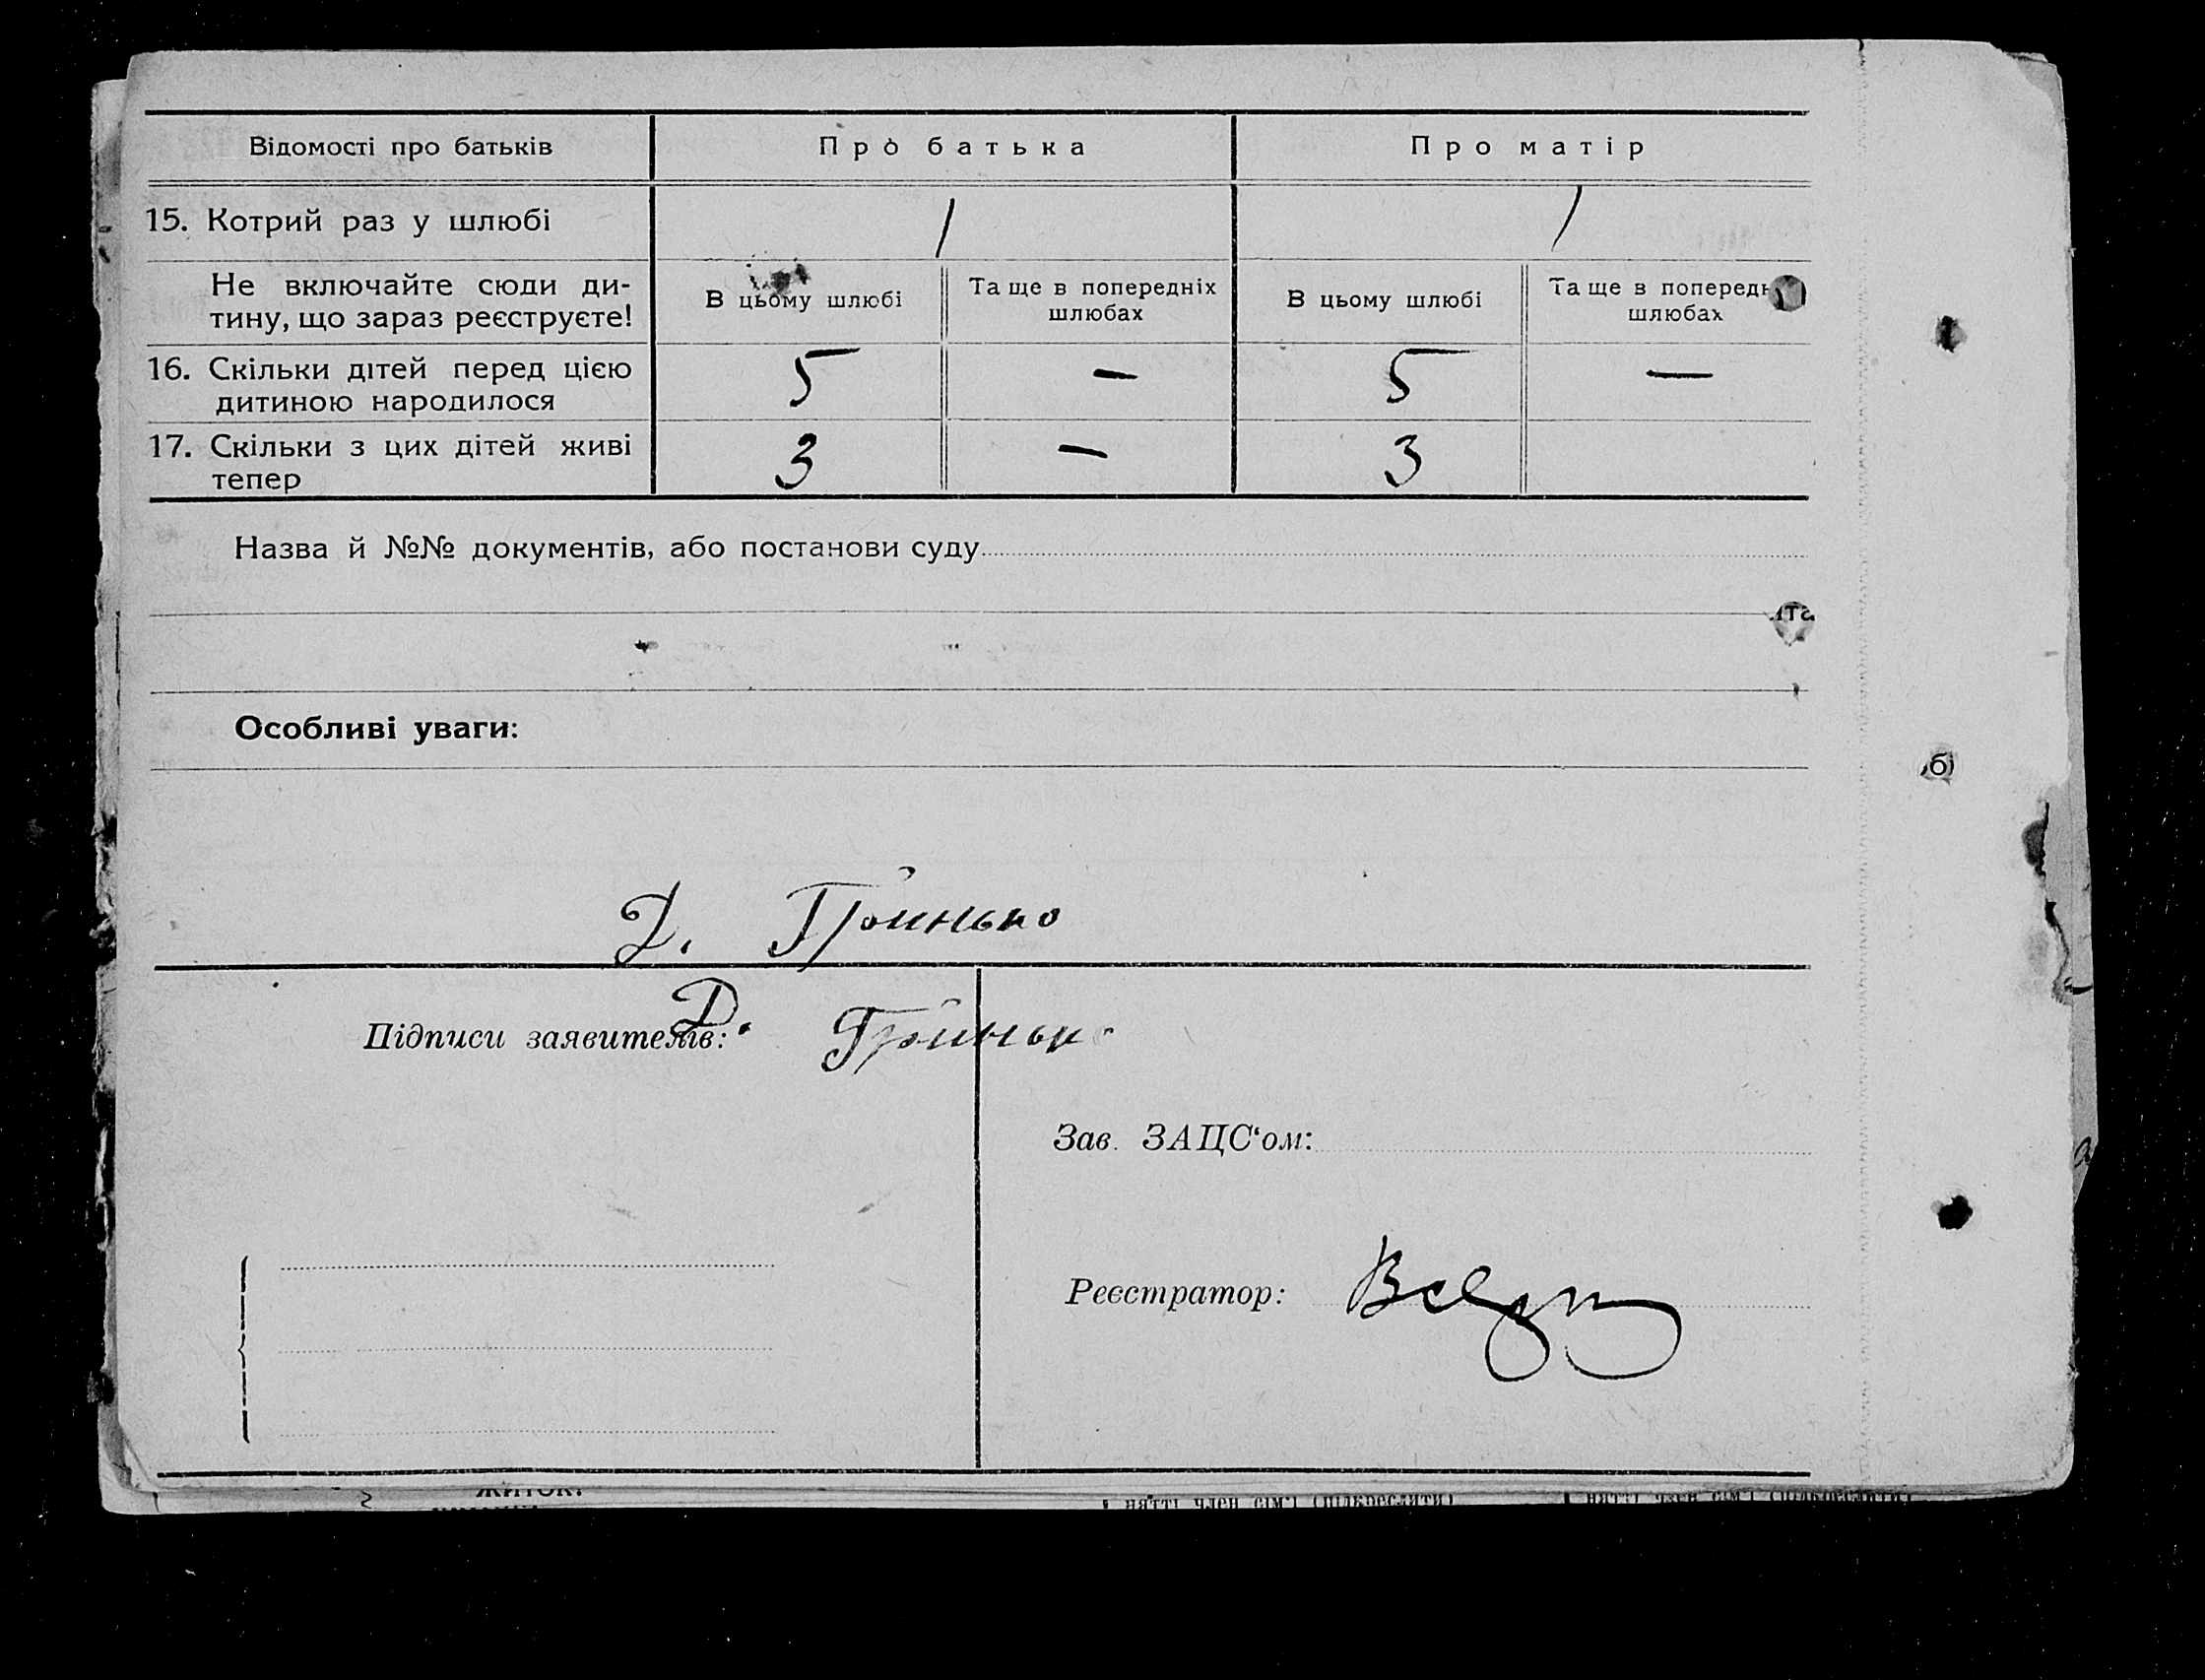 Відомості про батьків Про батька Про матір
15. Котрий раз у шлюбі 1 1
Не включайте сюди ди-
тину, що зараз реєструєте!
В цьому шлюбі
Та ще в попередніх
шлюбах
В цьому шлюбі
Та ще в попередн
шлюбах
16. Скільки дітей перед цією
дитиною народилося
5 — 5 —
17. Скільки з цих дітей живі
тепер
3 — 3
Назва й №№ документів, або постанови суду
Особливі уваги:
Д. Гринько
Підписи заявителів:
Д. Гринько
Зав. ЗАЦС‘ом:
Реєстратор: